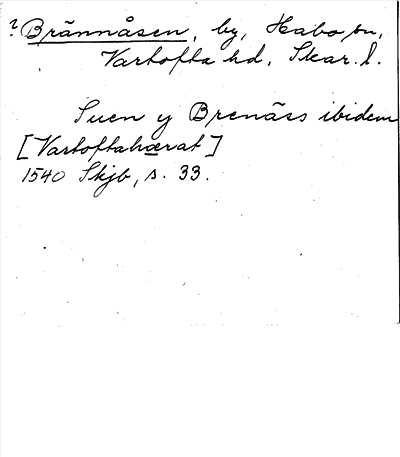 ? Brännåsen, by, Habo sn,
Vartofta hd, Skar. l.
Suen y Brenäss ibidem
[Vartoftahærat]
1540 Skjb, s. 33.